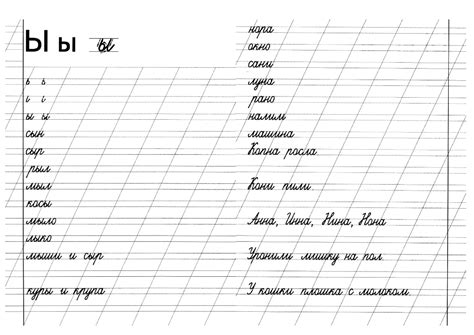 Ы ы ы
ь ь
і і
ы ы
сын
сыр
рыл
мыл
косы
мыло
лыко
мыши и сыр
куры и крупа
нора
окно
сани
луна
рано
налим
машина
Копна росла.
Кони пили.
Анна, Инна, Нина, Нона
Уронили мишку на пол.
У кошки плошка с молоком.